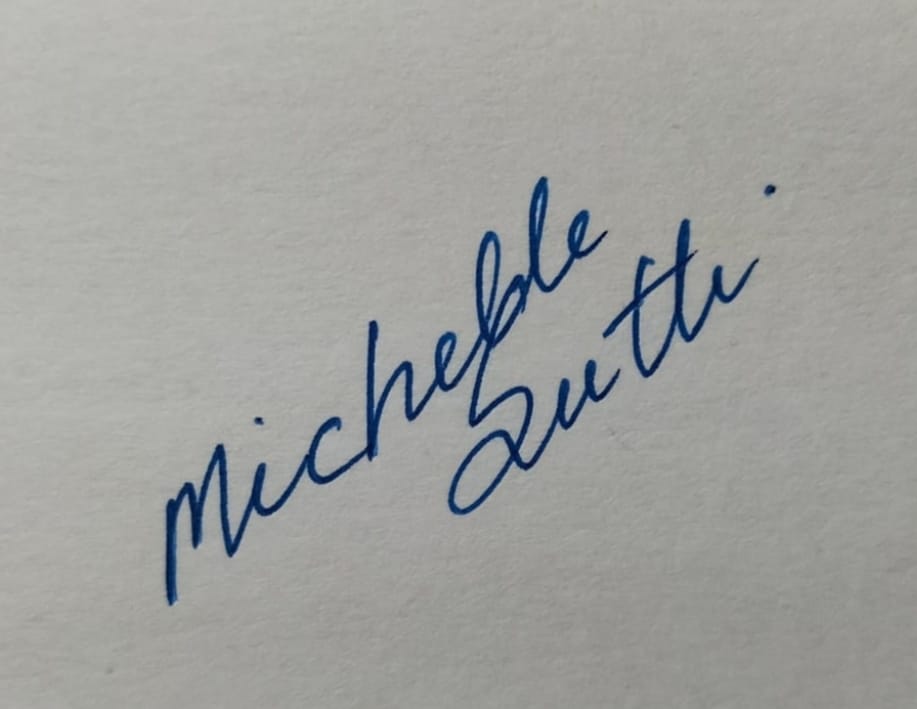 Michelle
Sutti